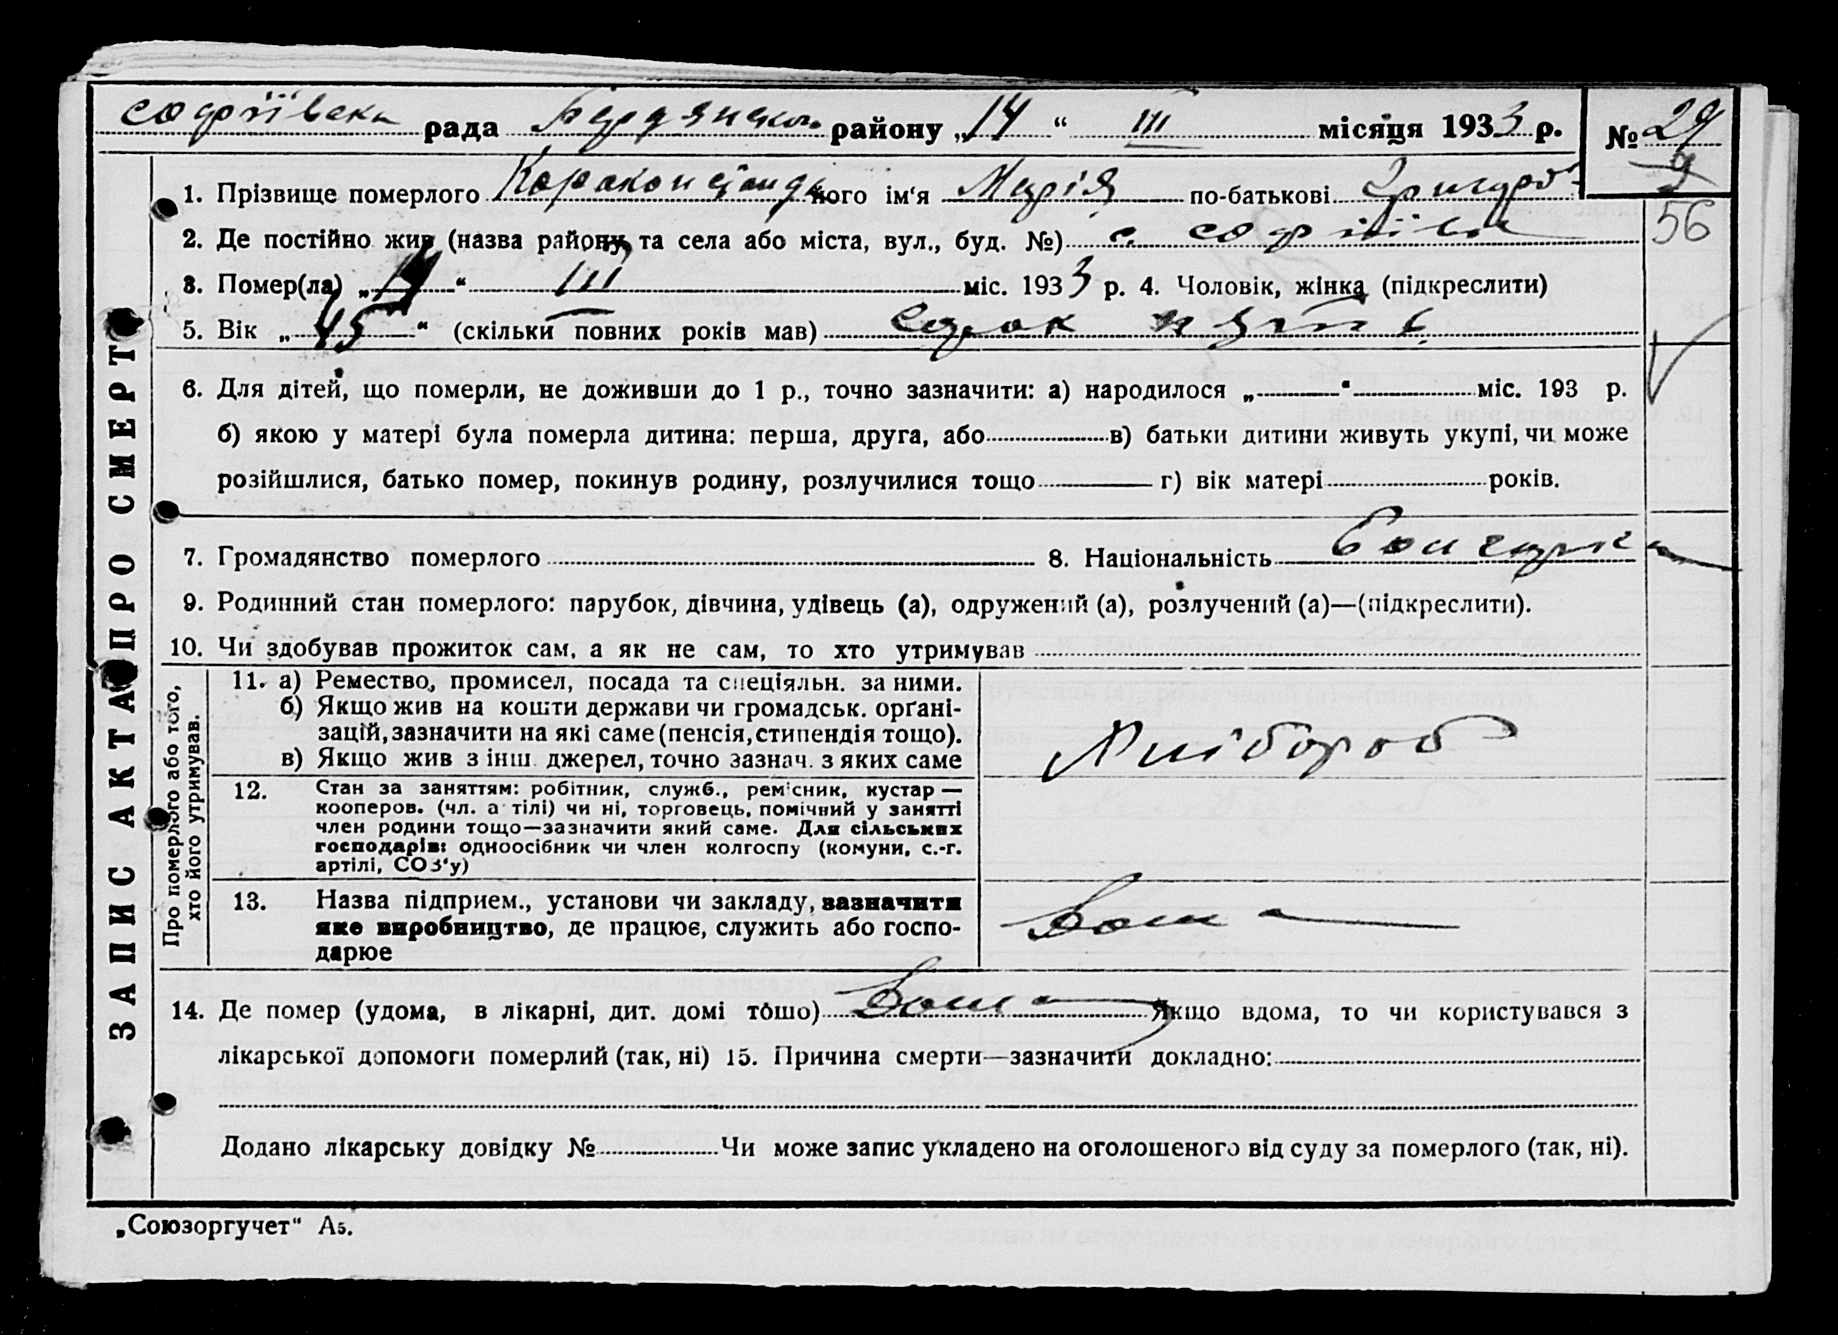 софіївська рада Бердянського району „14“ III місяця 1933 р. № 29
9
1. Прізвище померлого його ім'я Марія по-батькові Григоро
56
2. Де постійно жив (назва району та села або міста, вул., буд. №) с. софіївка
3. Помер(ла) „14“ III міс. 1933 р. 4. Чоловік, жінка (підкреслити)
5. Вік „45“ (скільки повних років мав) сорок пять
6. Для дітей, що померли, не доживши до 1 р., точно зазначити: а) народилося „ “ міс. 193 р.
б) якою у матері була померла дитина: перша, друга, або в) батьки дитини живуть укупі, чи може
розійшлися, батько помер, покинув родину, розлучилися тощо г) вік матері років.
7. Громадянство померлого 8. Національність болгарка
9. Родинний стан померлого: парубок, дівчина, удівець (а), одружений (а), розлучений (а)—(підкреслити).
10. Чи здобував прожиток сам, а як не сам, то хто утримував
ЗАПИС АКТА ПРО СМЕРТЬ
Про померлого або того, хто його утримував.
11. а) Ремество, промисел, посада та спеціяльн. за ними.
б) Якщо жив на кошти держави чи громадськ. орґані-
зацій, зазначити на які саме (пенсія, стипендія тощо).
в) Якщо жив з інш. джерел, точно зазнач. з яких саме
хлібороб
12. Стан за заняттям: робітник, служб., ремісник, кустар —
кооперов. (чл. артілі) чи ні, торговець, помічний у занятті
член родини тощо—зазначити який саме. Для сільських
господарів: одноосібник чи член колгоспу (комуни, с.-г.
артілі, СОЗ'у)
13. Назва підприєм., установи чи закладу, зазначити
яке виробництво, де працює, служить або госпо-
дарює
дома
14. Де помер (удома, в лікарні, дит. домі тощо) дома Якщо вдома, то чи користувався з
лікарської допомоги померлий (так, ні) 15. Причина смерти—зазначити докладно:
Додано лікарську довідку № Чи може запис укладено на оголошеного від суду за померлого (так, ні).
„Союзоргучет“ А5.